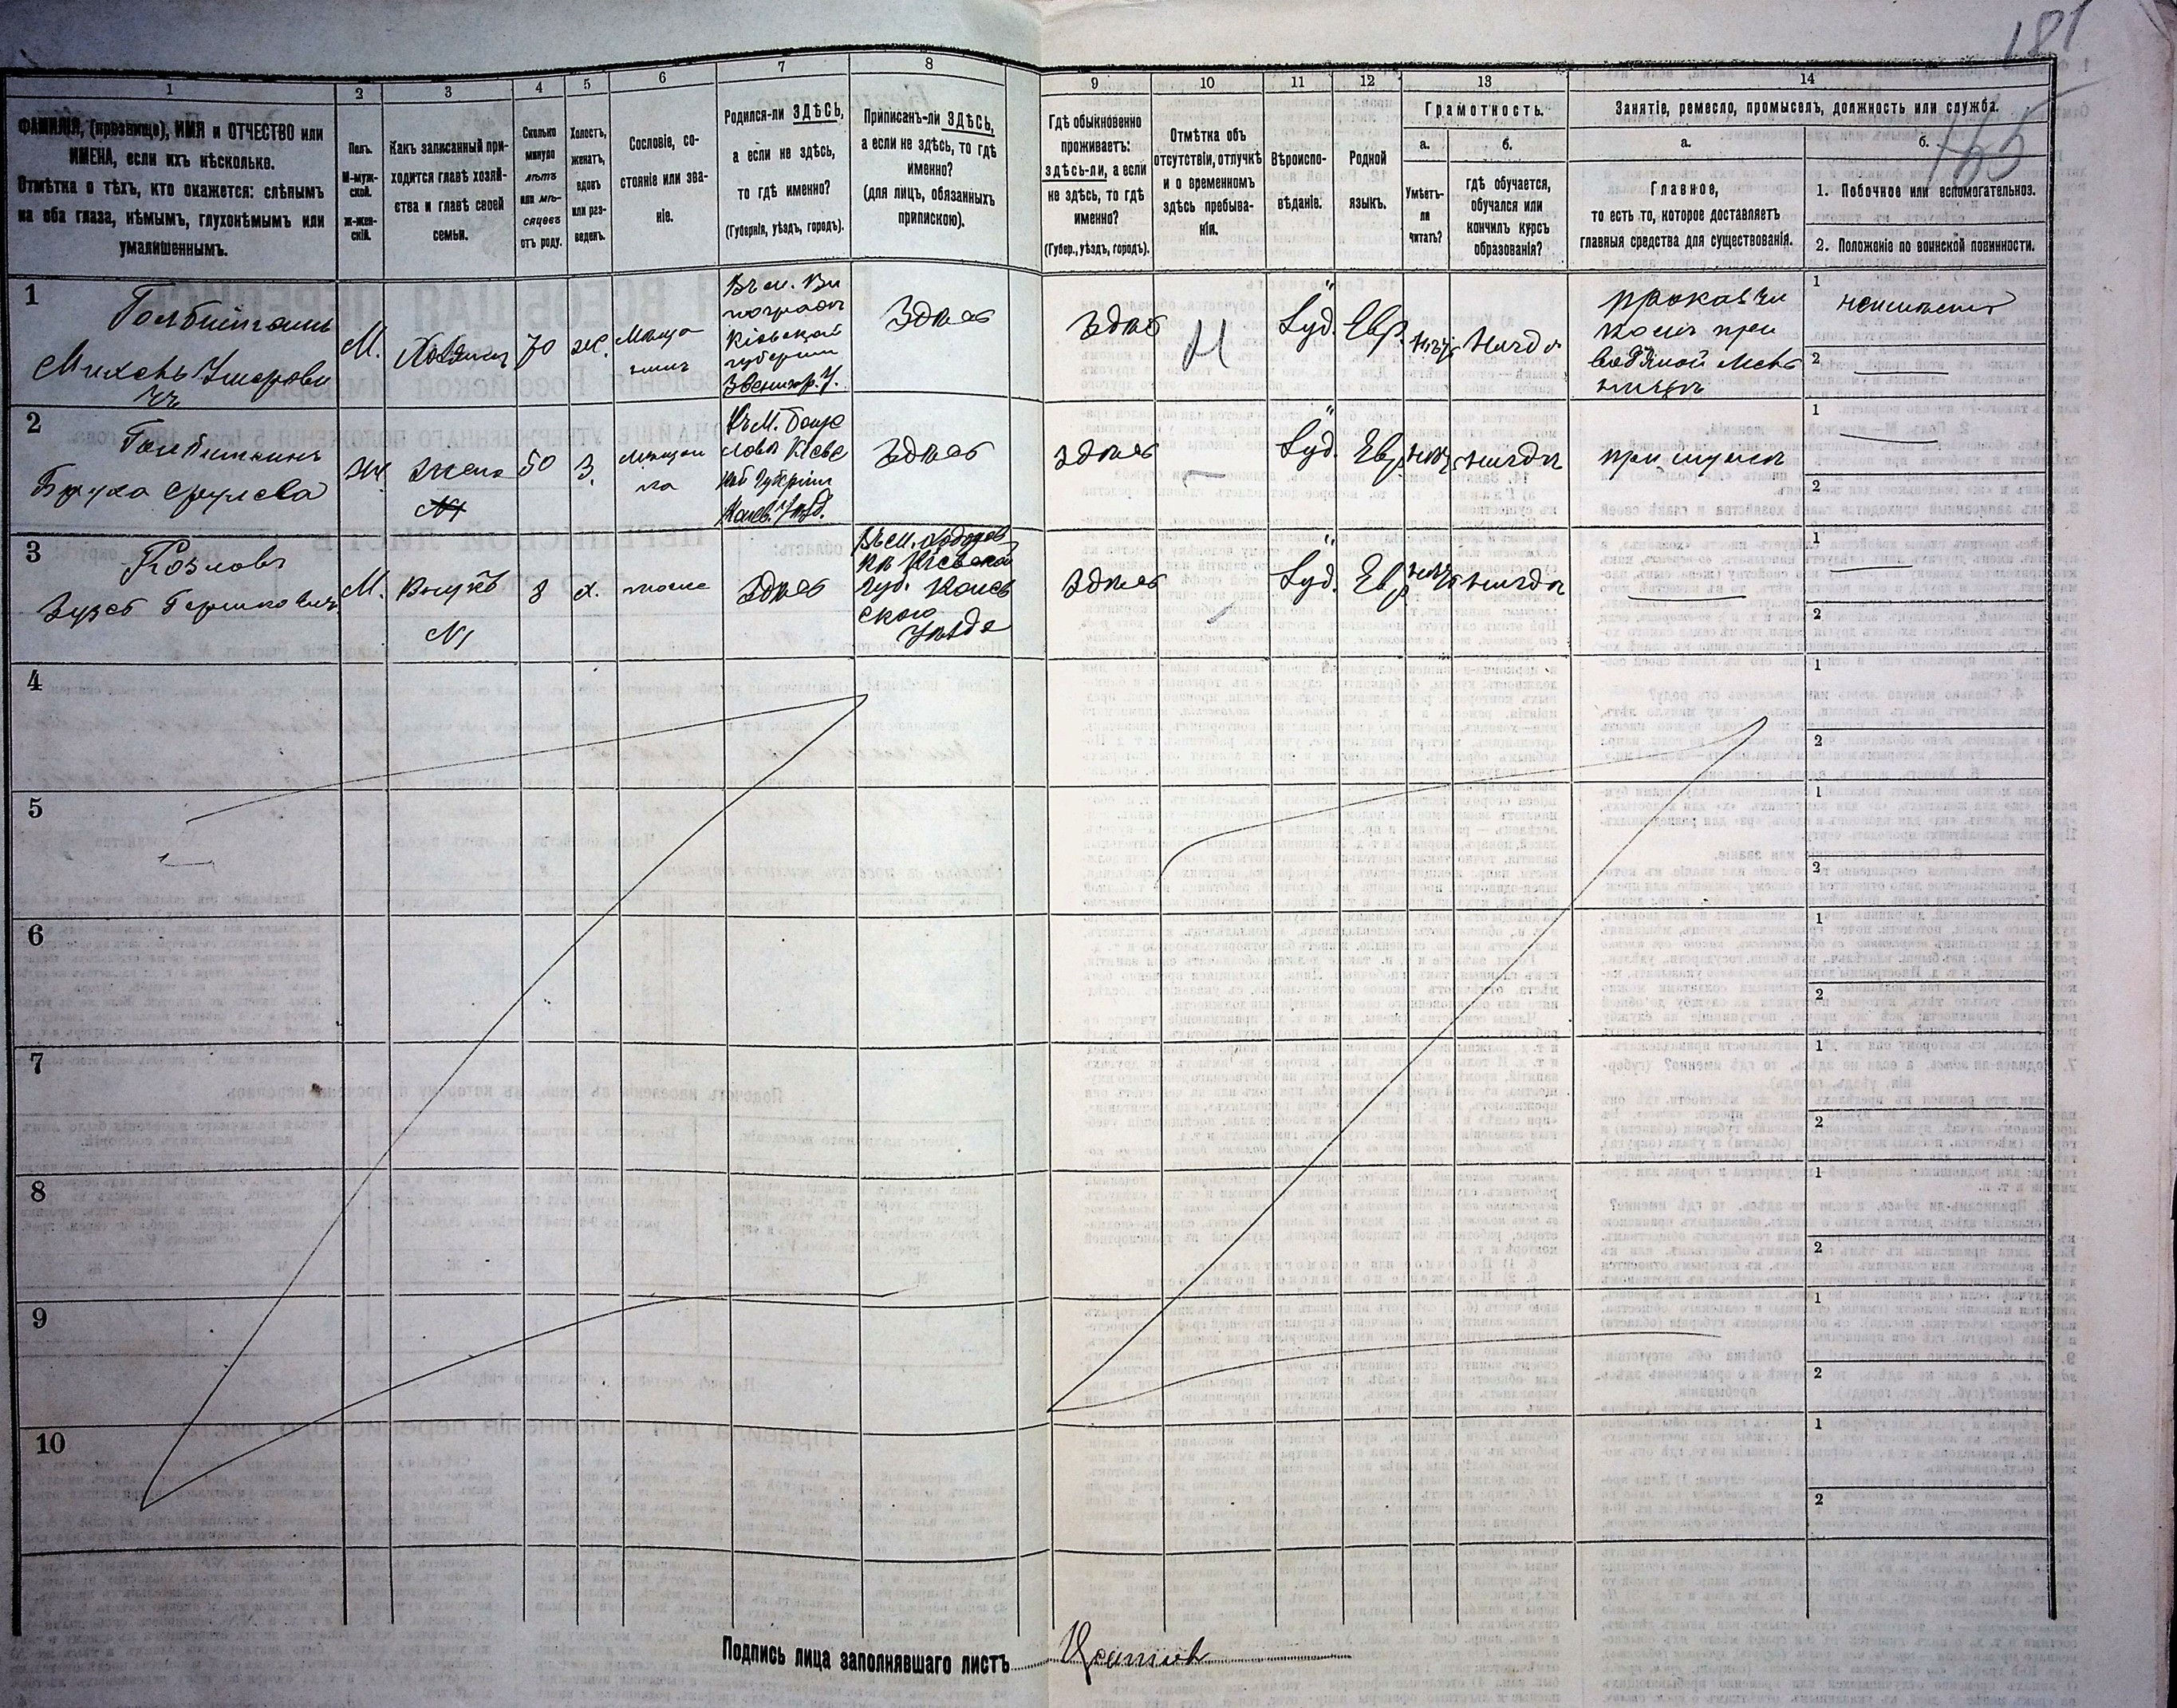 181
165
1
2
3
4
5
6
7
8
9
10
11
12
13
14
ФАМИЛІЯ, (прозвище), ИМЯ и ОТЧЕСТВО или
ИМЕНА, если ихъ нѣсколько.
Отмѣтка о тѣхъ, кто окажется: слѣпымъ
на оба глаза, нѣмымъ, глухонѣмымъ или
умалишеннымъ.
Полъ.
М-муж-
ской.
ж-жен-
скій.
Какъ записанный при-
ходится главѣ хозяй-
ства и главѣ своей
семьи.
Сколько
минуло
лѣтъ
или мѣ-
сяцевъ
отъ роду.
Холостъ,
женатъ,
вдовъ
или раз-
веденъ.
Сословіе, со-
стояніе или зва-
ніе.
Родился-ли ЗДѢСЬ,
а если не здѣсь,
то гдѣ именно?
(Губернія, уѣздъ, городъ).
Приписанъ-ли ЗДѢСЬ,
а если не здѣсь, то гдѣ
именно?
(для лицъ, обязанныхъ
припискою).
Гдѣ обыкновенно
проживаетъ:
здѣсь-ли, а если
не здѣсь, то гдѣ
именно?
(Губер., уѣздъ, городъ).
Отмѣтка объ
отсутствіи, отлучкѣ
и о временномъ
здѣсь пребыва-
ніи.
Вѣроиспо-
вѣданіе.
Родной
языкъ.
Грамотность.
а.
Умѣетъ-
ли
читать?
б.
гдѣ обучается,
обучался или
кончилъ курсъ
образованія?
Занятіе, ремесло, промыселъ, должность или служба.
а.
Главное,
то есть то, которое доставляетъ
главныя средства для существованія.
б.
1. Побочное или вспомогательное.
2. Положеніе по воинской повинности.
1
М.
Хозяинъ
70
ж.
Мѣща
нинъ
Въ м. Ви
ноградѣ
Кіевской
губерніи
Звенигор. У.
Здѣсь
Здѣсь
Н
Іуд.
Евр.
Нигдѣ
при
водяной мель
ницѣ
1
2
2
жн
Жена
50
З.
Мѣщан
ка
Въ М. Богу
слова Кіевс
кой Губерніи
Канев. Уѣзд.
Здѣсь
здѣсь
Іуд.
Евр.
нигдѣ
при мужѣ
1
2
3
Козловъ
Гершковичъ
М.
Внукъ
N1
8
х.
тоже
Здѣсь
Въ м. Ходоров
кѣ Кіевской
губ. Канев
скаго
Уѣзда
Здѣсь
Іуд.
Евр.
нигдѣ
1
2
4
1
2
5
1
2
6
1
2
7
1
2
8
1
2
9
1
2
10
1
2
Подпись лица заполнявшаго листъ